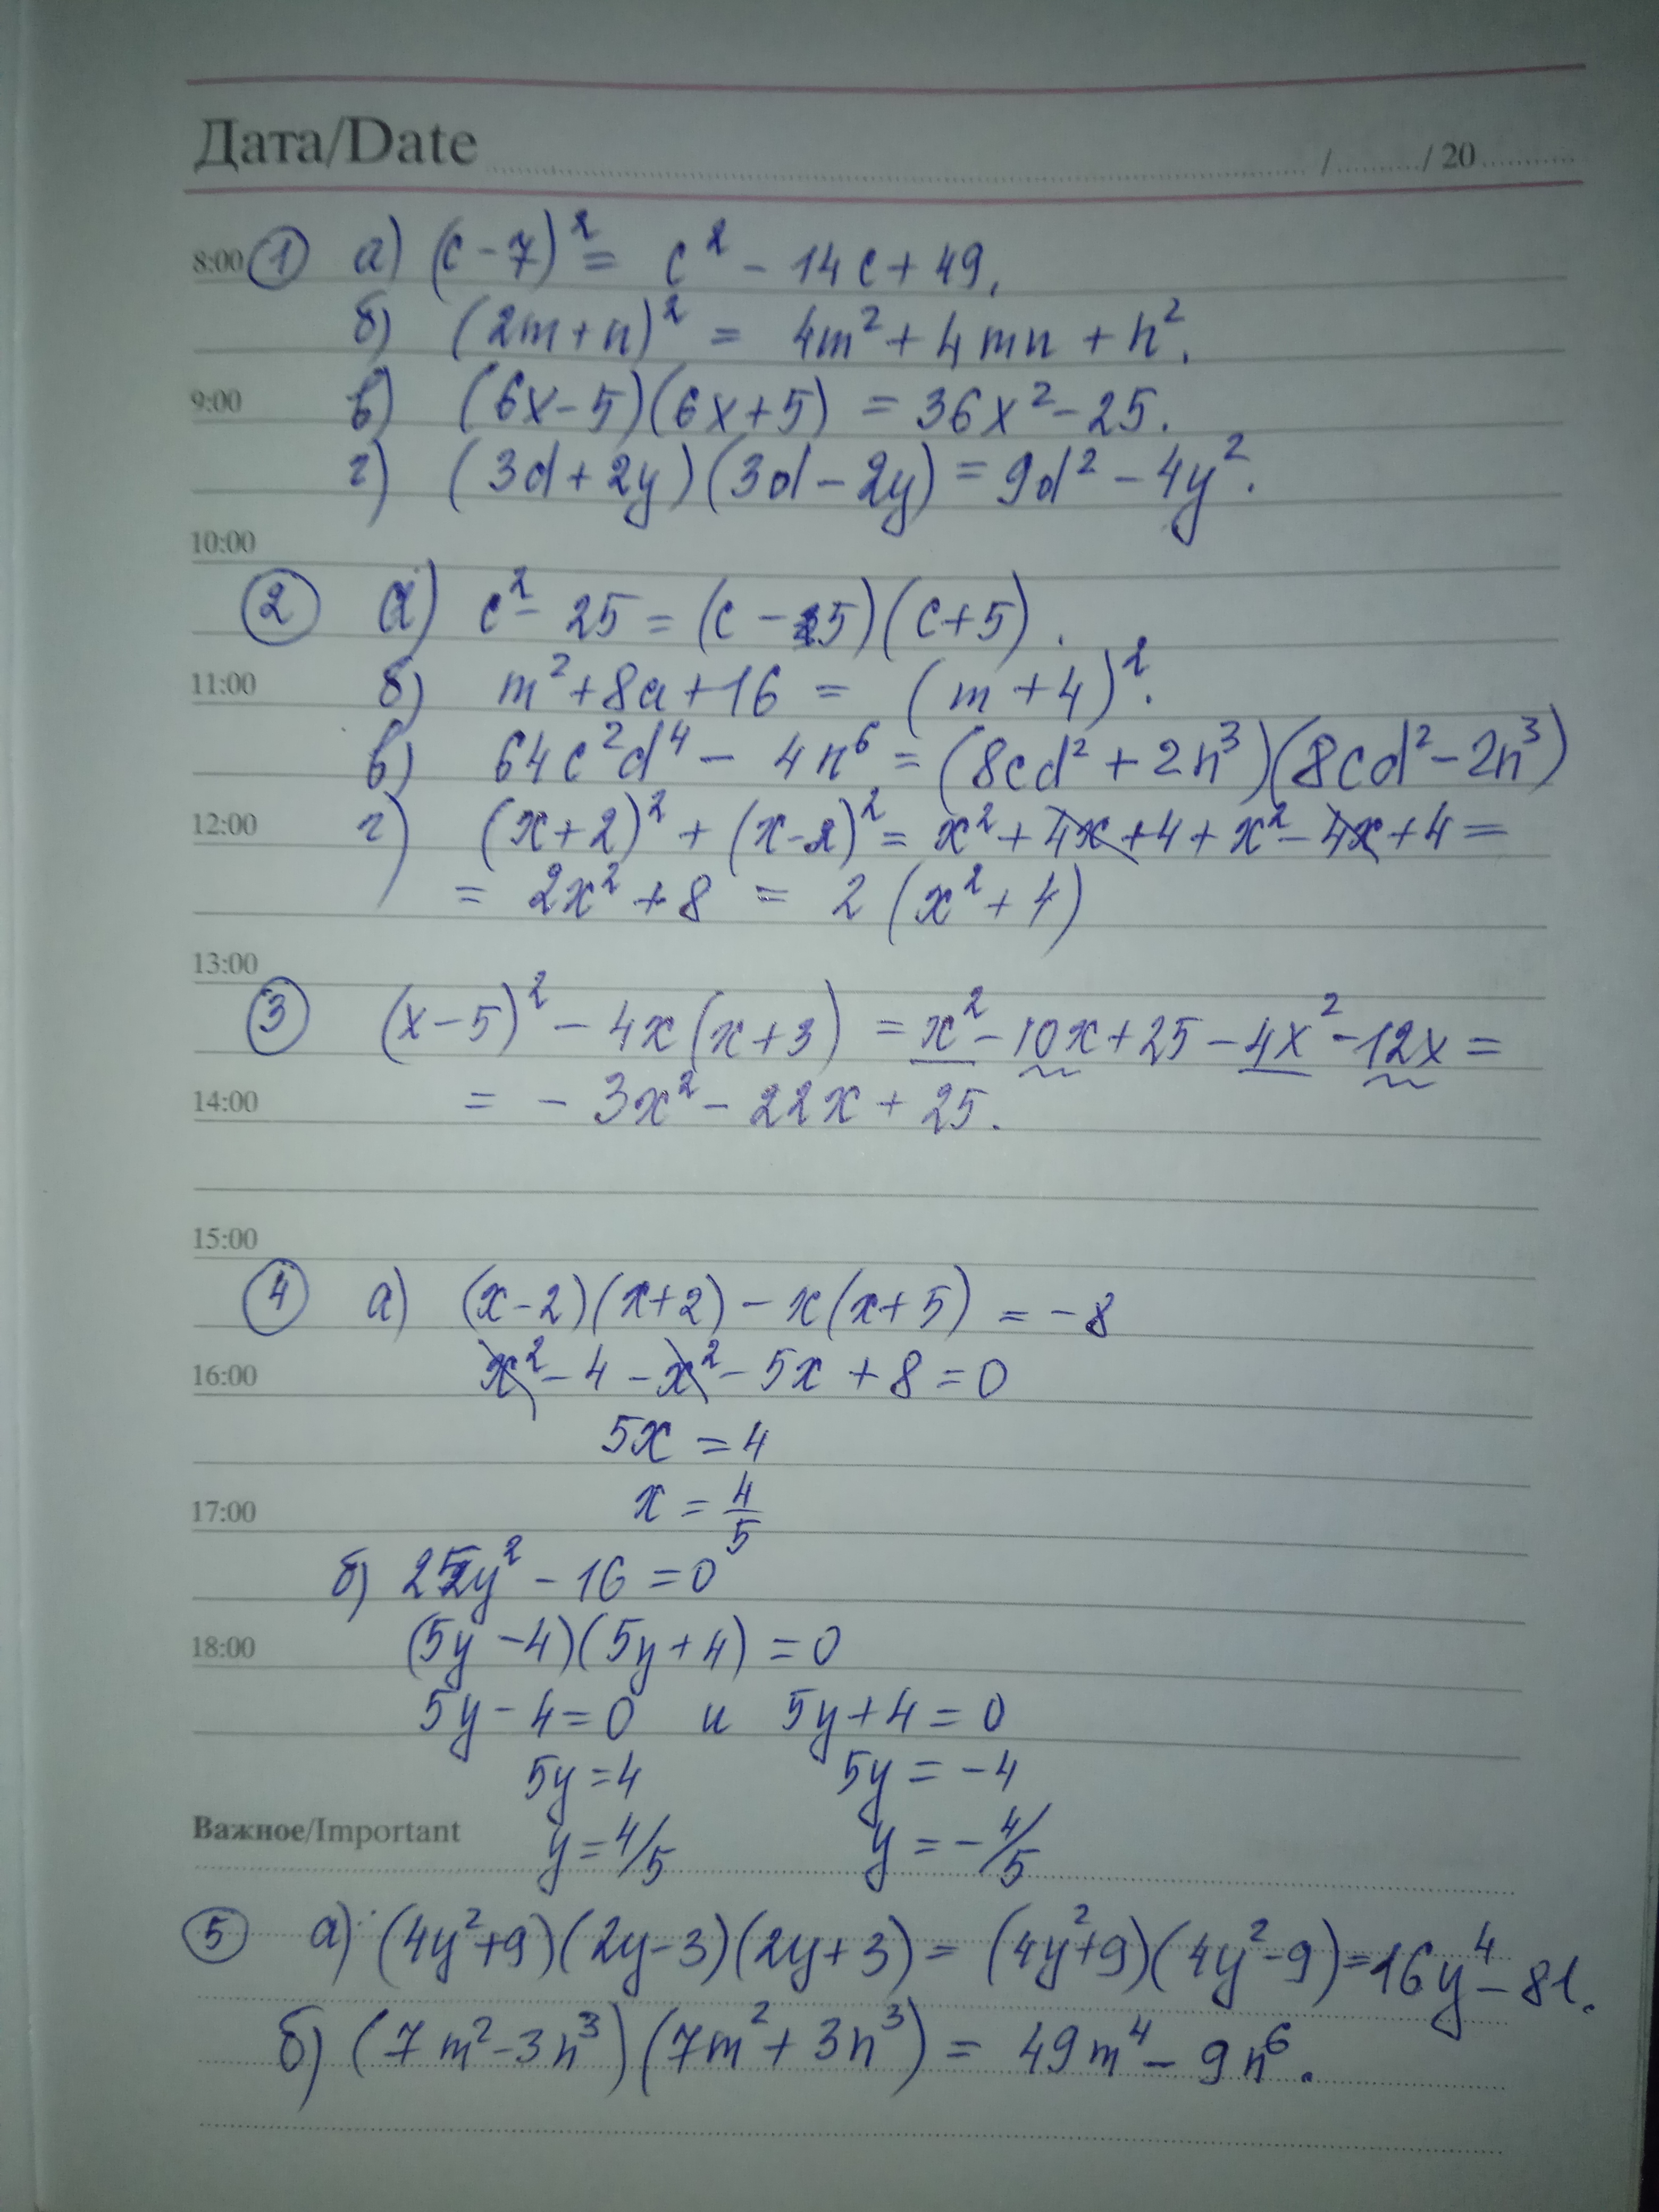 Дата/Date / / 20
8:00 ① а) (c-7)² = c² - 14c + 49.
б) (2m+n)² = 4m² + 4mn + n².
9:00 в) (6x-5)(6x+5) = 36x² - 25.
г) (3d+2y)(3d-2y) = 9d² - 4y².
10:00
② а) c² - 25 = (c-5)(c+5).
11:00 б) m² + 8a + 16 = (m+4)².
в) 64c²d⁴ - 4n⁶ = (8cd² + 2n³)(8cd² - 2n³)
12:00 г) (x+2)² + (x-2)² = x² + 4x + 4 + x² - 4x + 4 =
= 2x² + 8 = 2(x² + 4)
13:00
③ (x-5)² - 4x(x+3) = x² - 10x + 25 - 4x² - 12x =
14:00 = - 3x² - 22x + 25.
15:00
④ а) (x-2)(x+2) - x(x+5) = -8
16:00 x² - 4 - x² - 5x + 8 = 0
5x = 4
17:00 x = 4/5
б) 25y² - 16 = 0
18:00 (5y-4)(5y+4) = 0
5y - 4 = 0 и 5y + 4 = 0
5y = 4 5y = -4
Важное/Important y = 4/5 y = -4/5
⑤ а) (4y²+9)(2y-3)(2y+3) = (4y²+9)(4y²-9) = 16y⁴ - 81.
б) (7m² - 3n³)(7m² + 3n³) = 49m⁴ - 9n⁶.